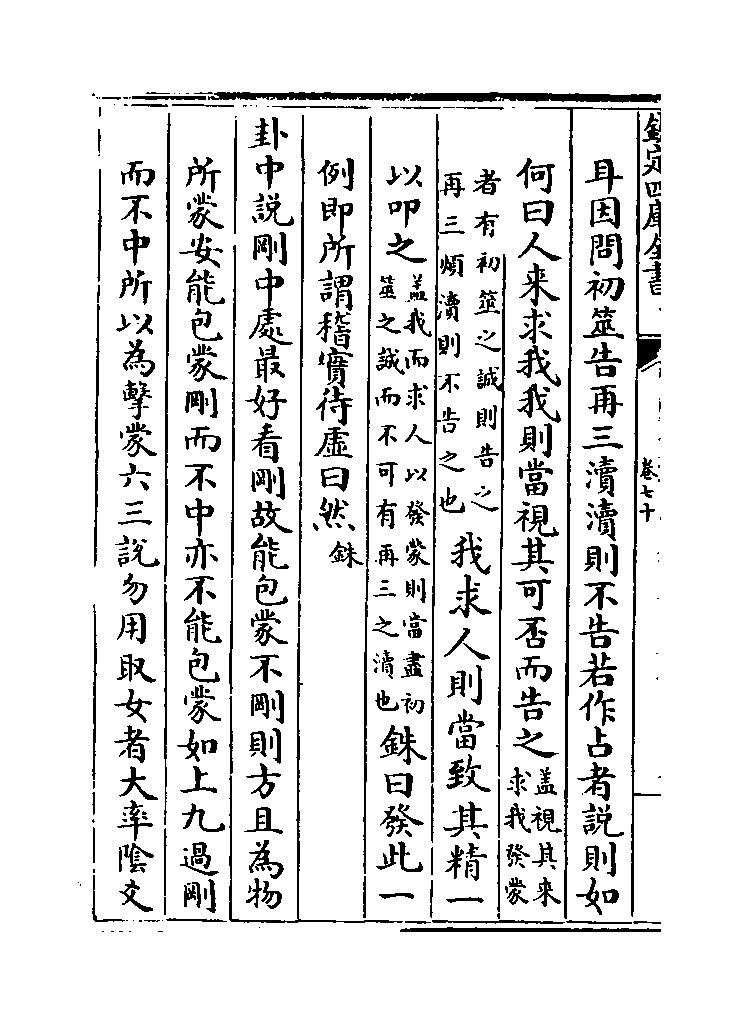 欽定四庫全書
卷七十
耳因問初筮告再三瀆瀆則不告若作占者説則如
何曰人来求我我則當視其可否而告之盖視其来求我發蒙
者有初筮之誠則告之再三煩瀆則不告之也我求人則當致其精一
以叩之盖我而求人以發蒙則當盡初筮之誠而不可有再三之瀆也銖曰發此一
例即所謂稽實待虛曰然銖
卦中説剛中處最好看剛故能包蒙不剛則方且為物
所蒙安能包蒙剛而不中亦不能包蒙如上九過剛
而不中所以為擊蒙六三説勿用取女者大率陰爻